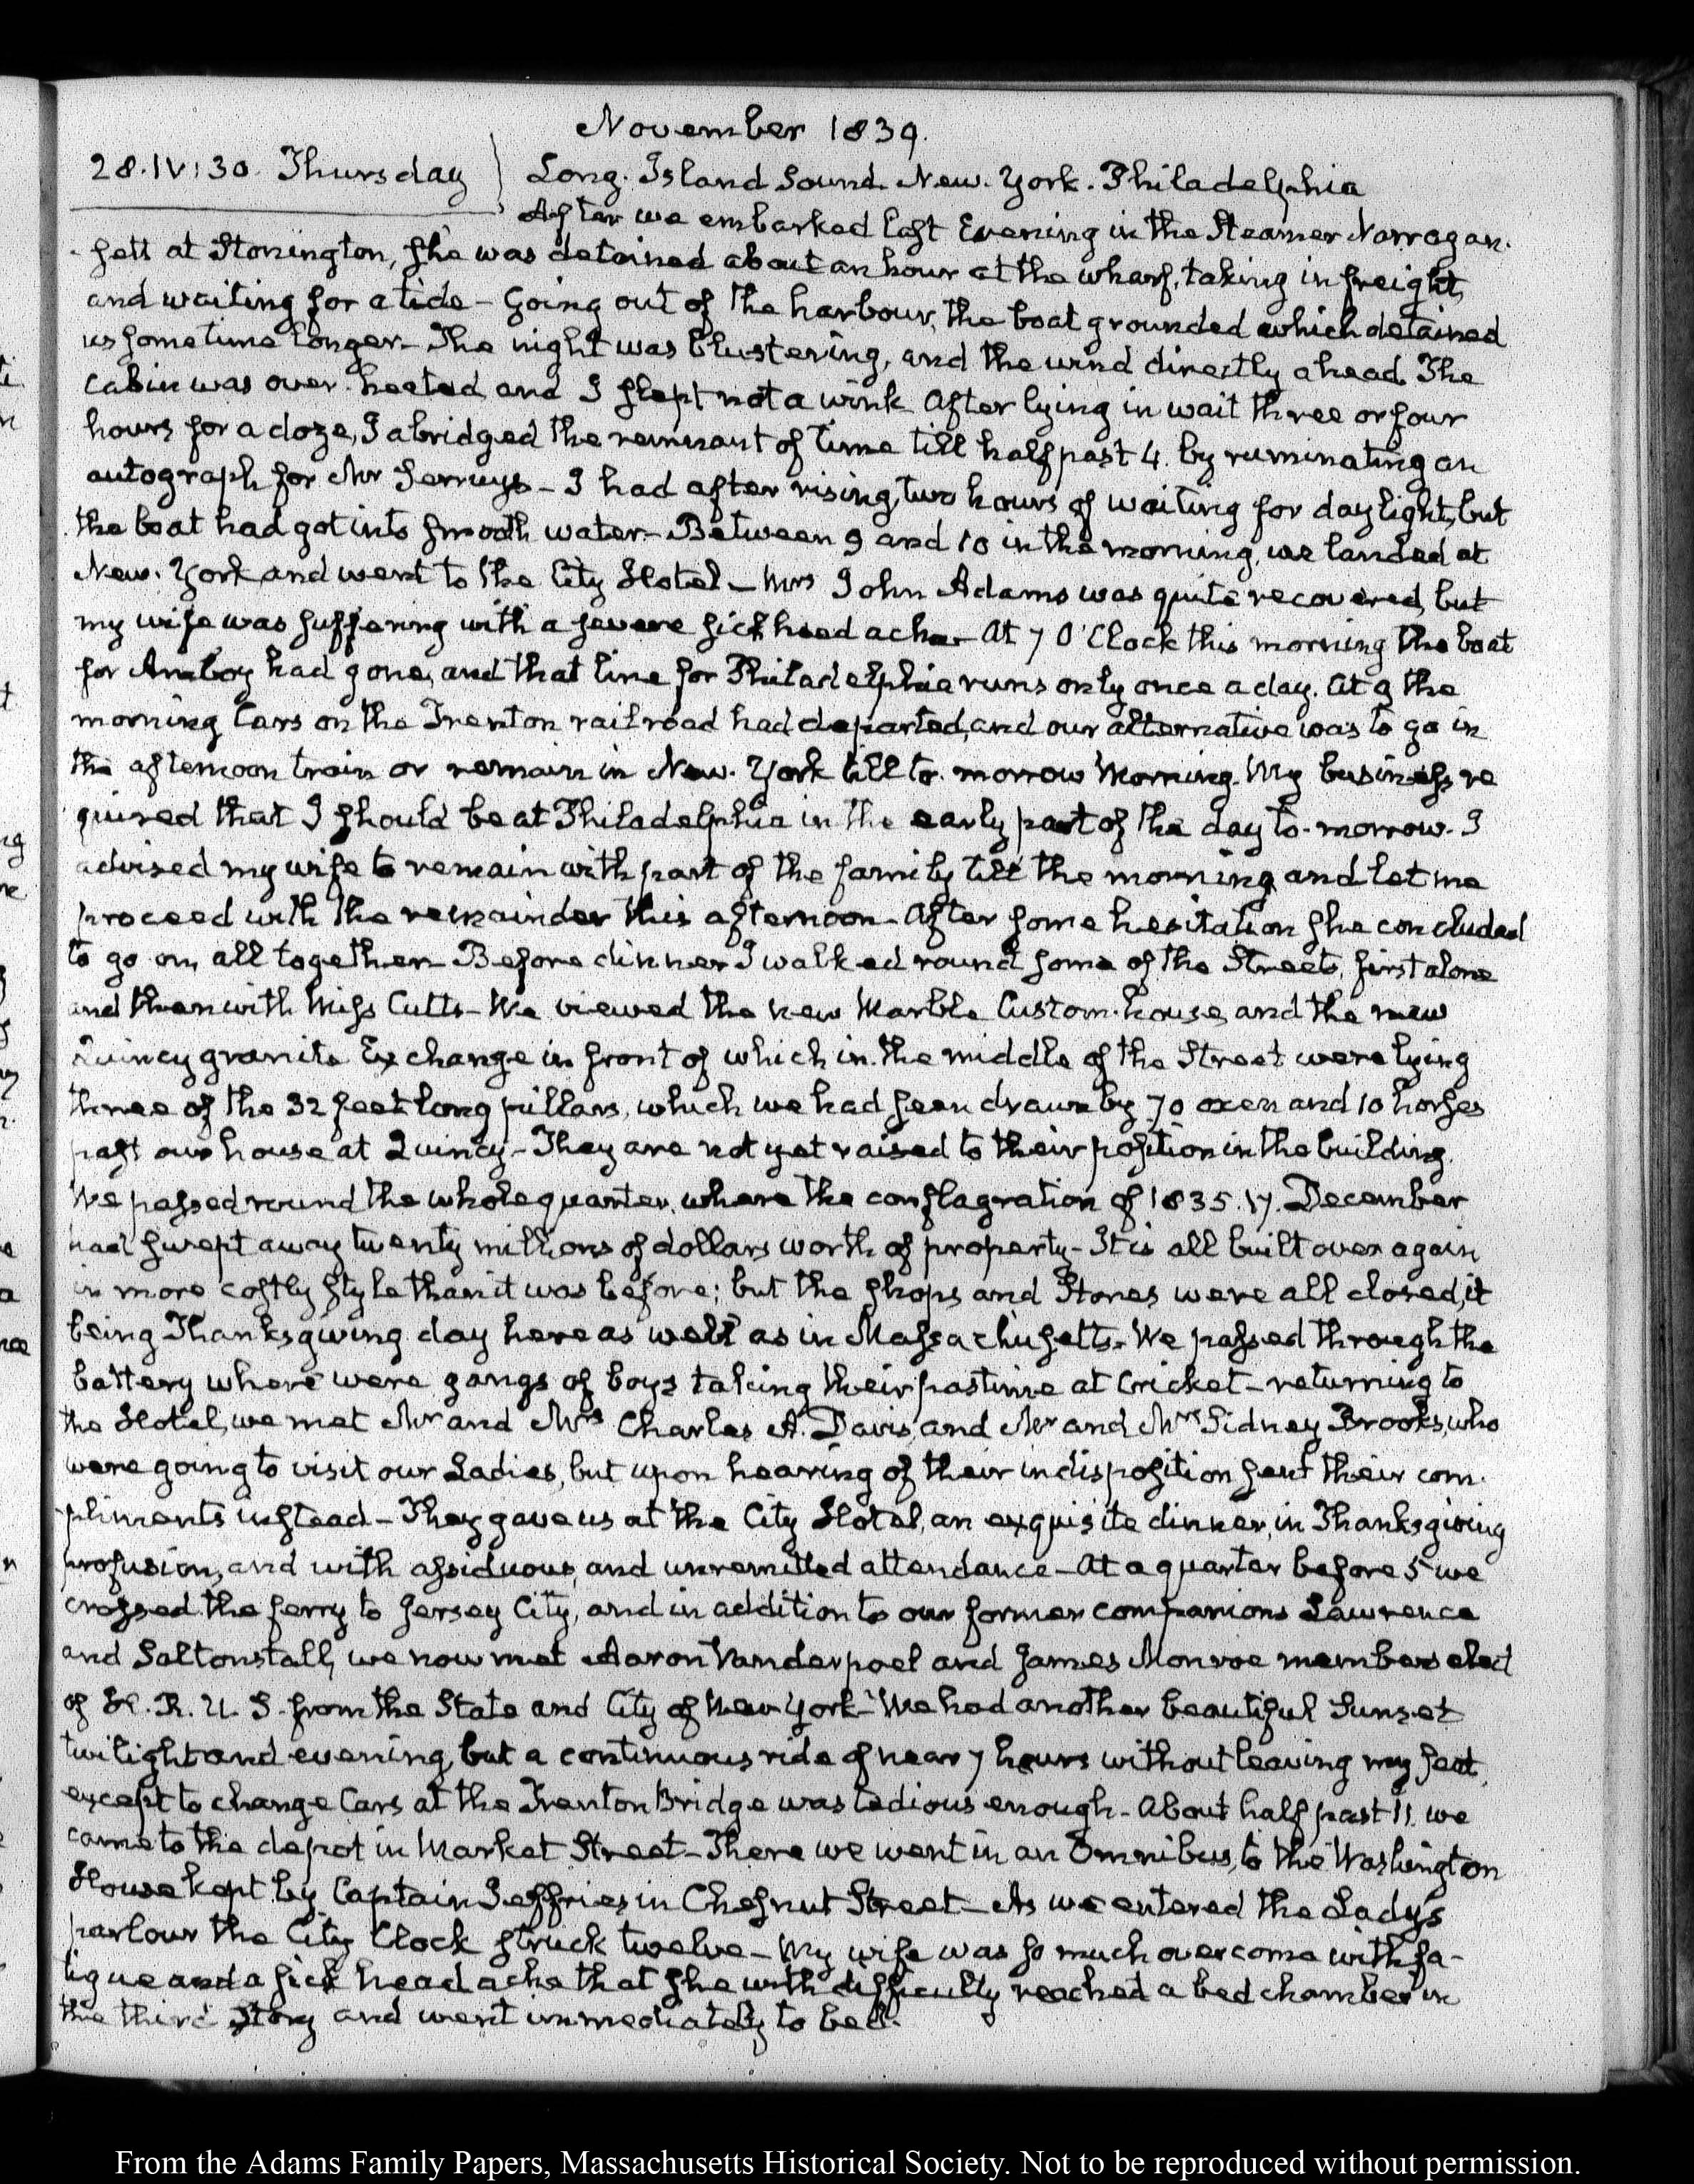 November 1839.
28. IV:30. Thursday
Long. Island Sound. New. York. Philadelphia
After we embarked last Evening in the Steamer Narragan-
sett at Stonington, she was detained about an hour at the wharf, taking in freight,
and waiting for a tide – Going out of the harbour, the boat grounded which detained
us some time longer – The night was blustering, and the wind directly ahead. The
Cabin was over-heated and I slept not a wink After lying in wait three or four
hours for a doze, I abridged the remnant of time till half past 4. by ruminating an
autograph for Mr – I had after rising, two hours of waiting for daylight, but
the boat had got into smooth water – Between 9 and 10 in the morning, we landed at
New. York and went to the City Hotel – Mrs John Adams was quite recovered, but
my wife was suffering with a severe sick head ache – At 7 O'Clock this morning the boat
for Amboy had gone, and that line for Philadelphia runs only once a day. At 9 the
morning Cars on the Trenton railroad had departed, and our alternative was to go in
the afternoon train or remain in New. York till to-morrow Morning. My business re
quired that I should be at Philadelphia in the early part of the day to-morrow. I
advised my wife to remain with part of the family till the morning and let me
proceed with the remainder this afternoon – After some hesitation she concluded
to go on, all together – Before dinner I walked round some of the Streets, first alone
and then with Miss Cutts – We viewed the new Marble Custom-house, and the new
Quincy granite Exchange in front of which in the middle of the Street were lying
three of the 32 feet long pillars, which we had seen drawn by 70 oxen and 10 horses
past our house at Quincy – They are not yet raised to their position in the building.
We passed round the whole quarter, where the conflagration of 1835. 17. December
had swept away twenty millions of dollars worth of property – It is all built over again
in more costly style than it was before; but the shops and Stores were all closed, it
being Thanksgiving day here as well as in Massachusetts. We passed through the
battery where were gangs of boys taking their pastime at Cricket – returning to
the Hotel, we met Mr and Mrs Charles A. Davis, and Mr and Mrs Sidney Brooks, who
were going to visit our Ladies, but upon hearing of their indisposition sent their com-
pliments instead – They gave us at the City Hotel, an exquisite dinner, in Thanksgiving
profusion, and with assiduous, and unremitted attendance – At a quarter before 5 we
crossed the ferry to Jersey City, and in addition to our former companions Lawrence
and Saltonstall, we now met Aaron Vanderpoel and James Monroe members elect
of H. R. U. S. from the State and City of New York – We had another beautiful Sunset
twilight and evening, but a continuous ride of near 7 hours without leaving my seat,
except to change Cars at the Trenton Bridge was tedious enough – About half past 11. we
came to the depot in Market Street – There we went in an Omnibus, to the Washington
House kept by Captain Jeffries in Chesnut Street – As we entered the Lady's
parlour the City Clock struck twelve – My wife was so much overcome with fa-
tigue and a sick head ache that she with difficulty reached a bed chamber in
the third Story and went immediately to bed.
From the Adams Family Papers, Massachusetts Historical Society. Not to be reproduced without permission.